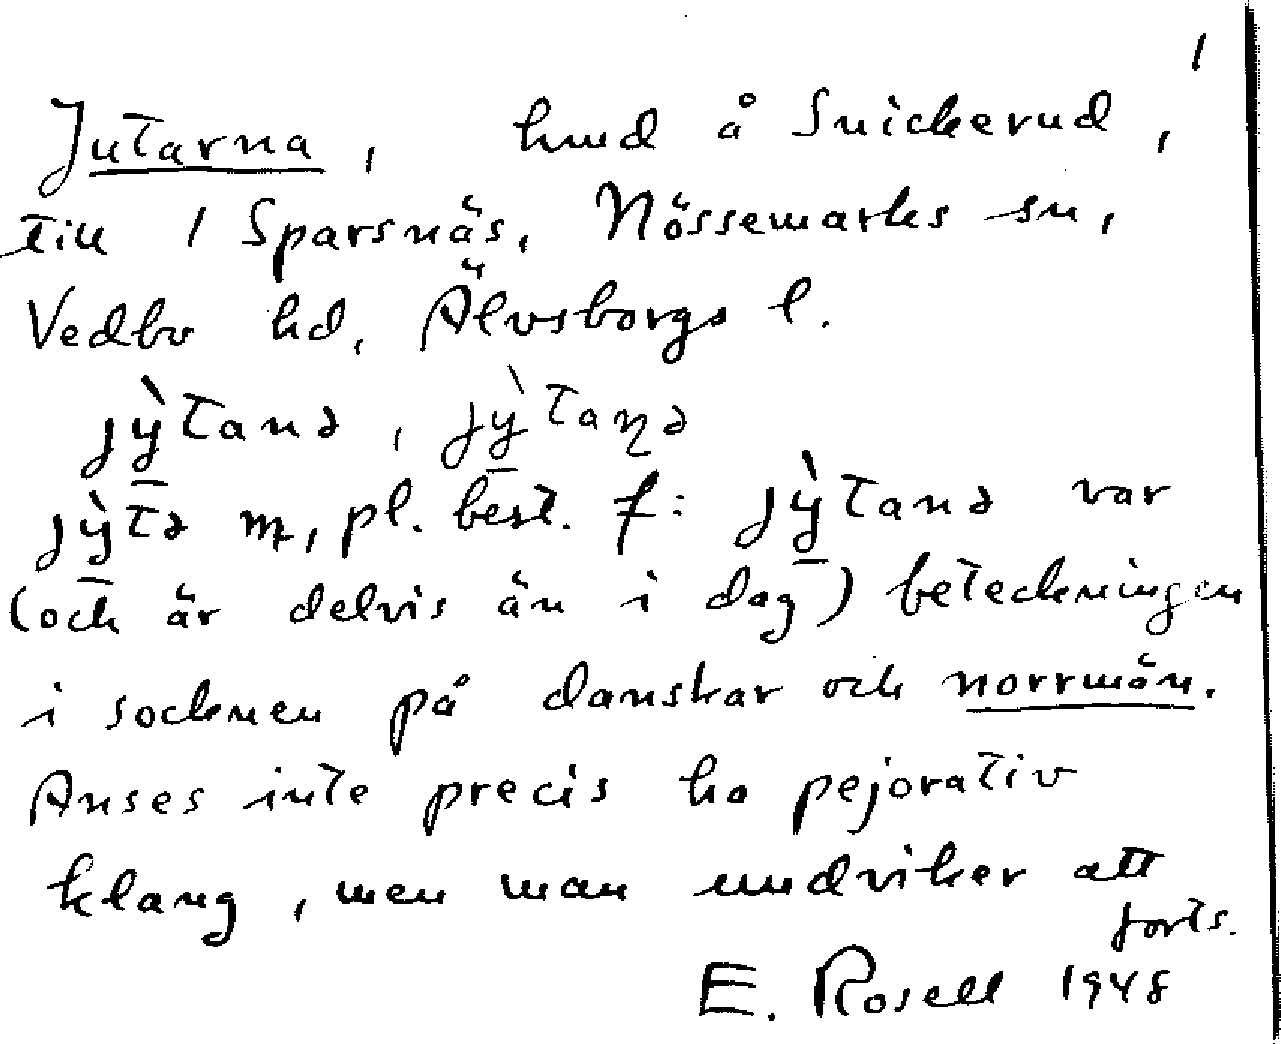 1
Jutarna, hmd å Snickerud,
till 1 Sparsnäs, Nössemarks sn,
Vedbo hd, Älvsborgs l.
jỳ̱tanə, jỳ̱taṇə
jỳ̱tə m, pl. best. f: jỳ̱tanə var
(och är delvis än i dag) beteckningen
i socknen på danskar och norrmän.
Anses inte precis ha pejorativ
klang, men man undviker att
forts.
E. Rosell 1948